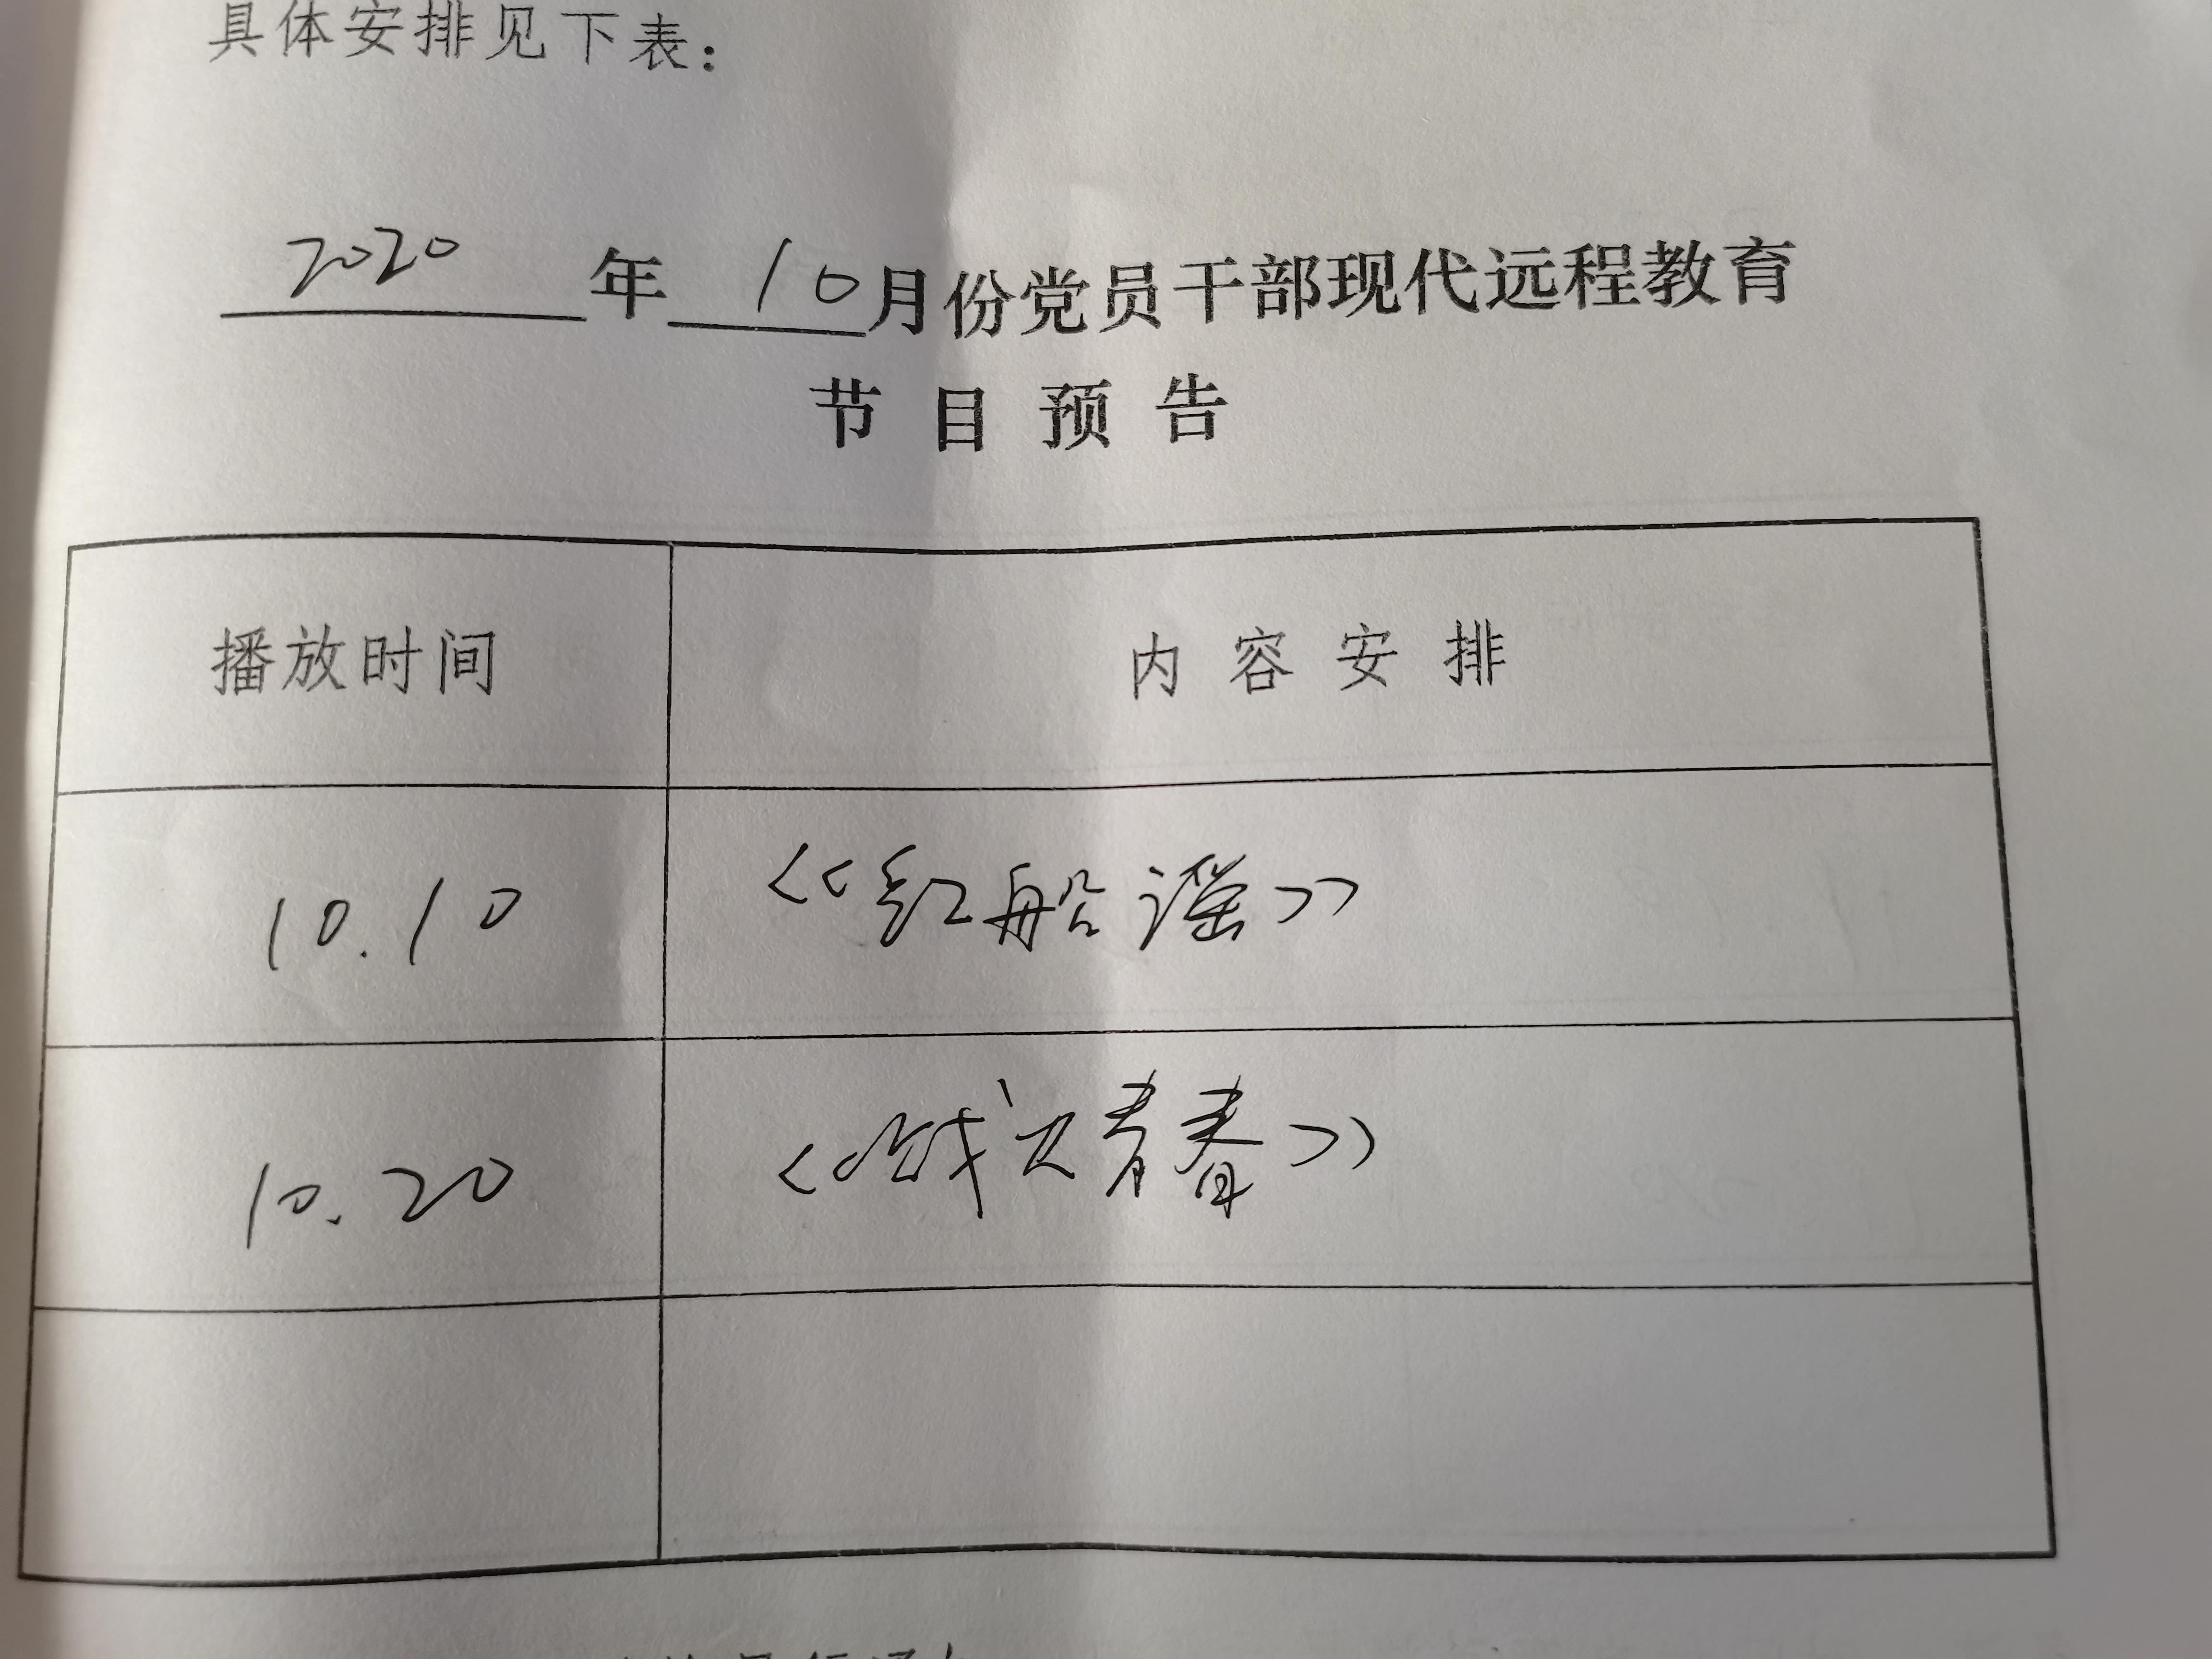 具体安排见下表：
2020年10月份党员干部现代远程教育
节目预告
播放时间 内容安排
10.10 《红船谣》
10.20 《战火青春》